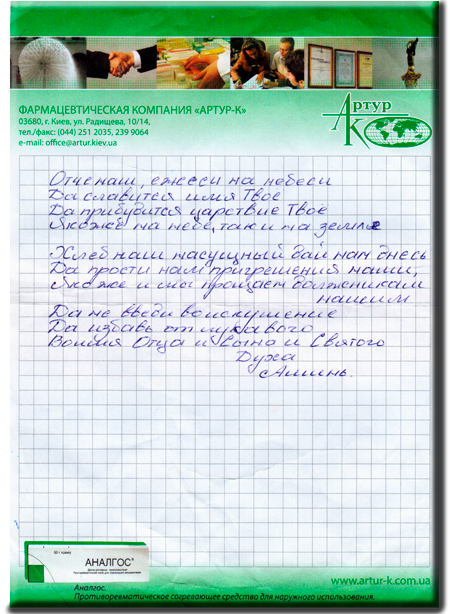 ФАРМАЦЕВТИЧЕСКАЯ КОМПАНИЯ «АРТУР-К»
03680, г. Киев, ул. Радищева, 10/14,
тел./факс: (044) 251 2035, 239 9064
e-mail: office@artur.kiev.ua
Артур
К
Отче наш, еже еси на небеси
Да славится имя Твое
Да прибудится царствие Твоё
Якоже на небе, таки на земле
Хлеб наш насущный дай нам днесь
Да прости нам пригрешения наши,
Якоже и мы прощаем должникам
нашим
Да не введи во искушение
Да избавь от лукавого
Во имия Отца и Сына и Святого
Духа
Аминь.
АНАЛГОС®
www.artur-k.com.ua
Аналгос.
Противоревматическое согревающее средство для наружного использования.